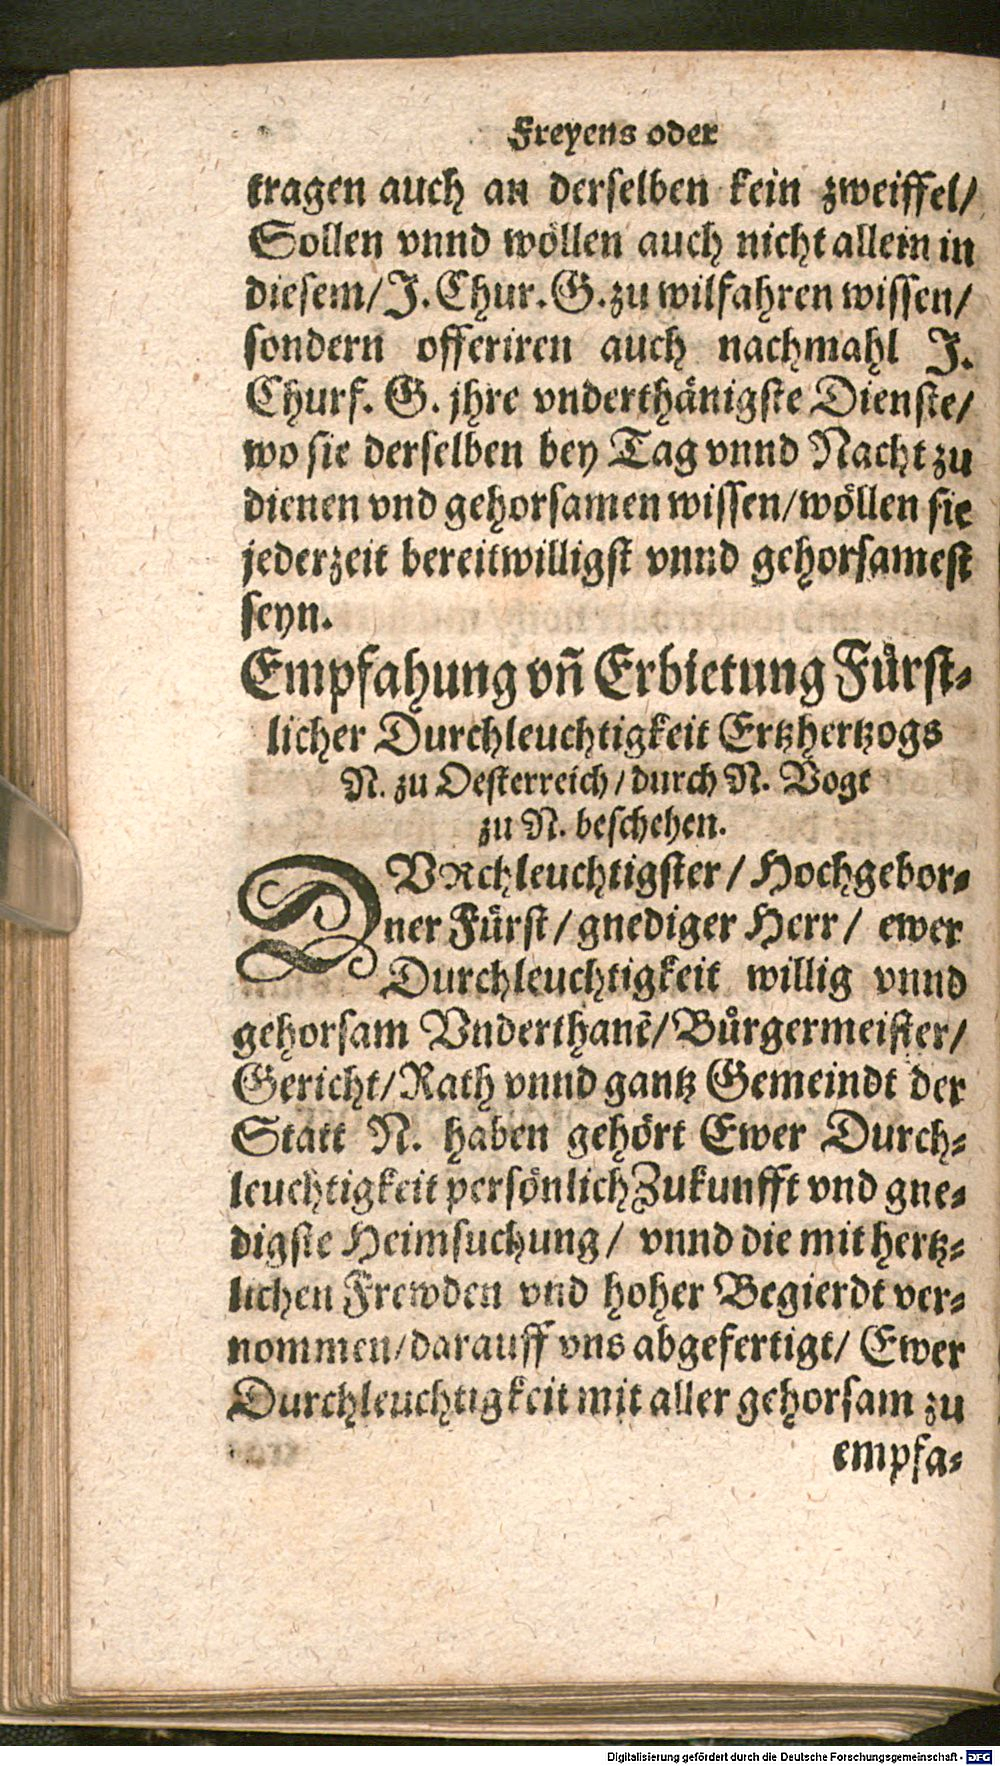 Freyens oder
tragen auch an derselben kein zweiffel/
Sollen vnnd wöllen auch nicht allein in
diesem/ J. Chur. G. zu wilfahren wissen/
sondern offeriren auch nachmahl J.
Churf. G. jhre vnderthänigste Dienste/
wo sie derselben bey Tag vnnd Nacht zu
dienen vnd gehorsamen wissen/ wöllen sie
jederzeit bereitwilligst vnnd gehorsamest
seyn.
Empfahung vñ Erbietung Fürst-
licher Durchleuchtigkeit Ertzhertzogs
N. zu Oesterreich/ durch N. Vogt
zu N. beschehen.
DVRchleuchtigster/ Hochgebor-
ner Fürst/ gnediger Herr/ ewer
Durchleuchtigkeit willig vnnd
gehorsam Vnderthanẽ/ Bůrgermeister/
Gericht/ Rath vnnd gantz Gemeindt der
Statt N. haben gehört Ewer Durch-
leuchtigkeit persönlich Zukunfft vnd gne-
digste Heimsuchung/ vnnd die mit hertz-
lichen Frewden vnd hoher Begierdt ver-
nommen/ darauff vns abgefertigt/ Ewer
Durchleuchtigkeit mit aller gehorsam zu
empfa-
Digitalisierung gefördert durch die Deutsche Forschungsgemeinschaft - DFG